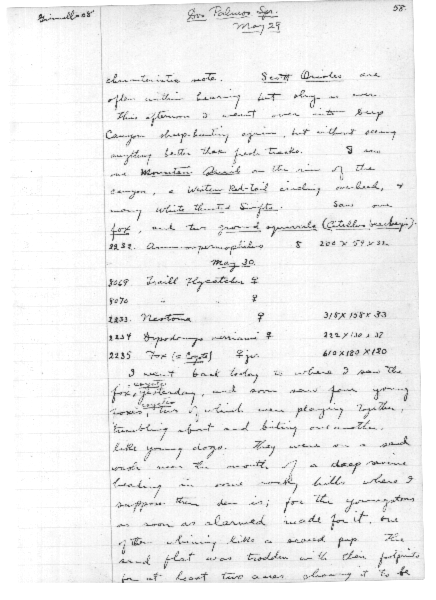 Grinnell - 08
Dos Palmos Spr.
58
May 29
characteristic note. Scott Orioles are
often within hearing but shy as ever.
This afternoon I went over into Deep
Canyon sheep-hunting again, but without seeing
anything better than fresh tracks. I saw
one Mountain Quail on the rim of the
canyon, a Western Red-tail circling overhead, &
many White throated Swifts. Saw one
fox, and two ground squirrels (Citellus beecheyi).
2232. Ammospermophilus 8 200 x 59 x 32
May 30.
8069 Traill Flycatcher ♀
8070 " " ♀
2233. Neotoma ♀ 318 x 158 x 33
2234 Dipodomys merriami ♀ 222 x 130 x 37
2235 Fox (= Coyote) ♀ jv. 610 x 180 x 120
I went back today to where I saw the
coyote
fox, yesterday, and soon saw four young
coyotes
foxes, two of which were playing together,
tumbling about and biting one another,
like young dogs. They were on a sand
wash near the mouth of a deep ravine
heading in some rocky hills where I
suppose their den is; for the youngsters
as soon as alarmed made for it, one
of them whining like a scared pup. The
sand flat was trodden with their footprints
for at least two acres showing it to be